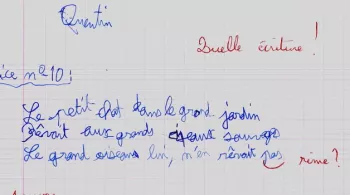 Quentin
Quelle écriture !
ice n°10 :
Le petit chat dans le grand jardin
Rêvait aux grands oiseaux sauvages
Le grand oiseau lui, n'en rêvait pas rime ?